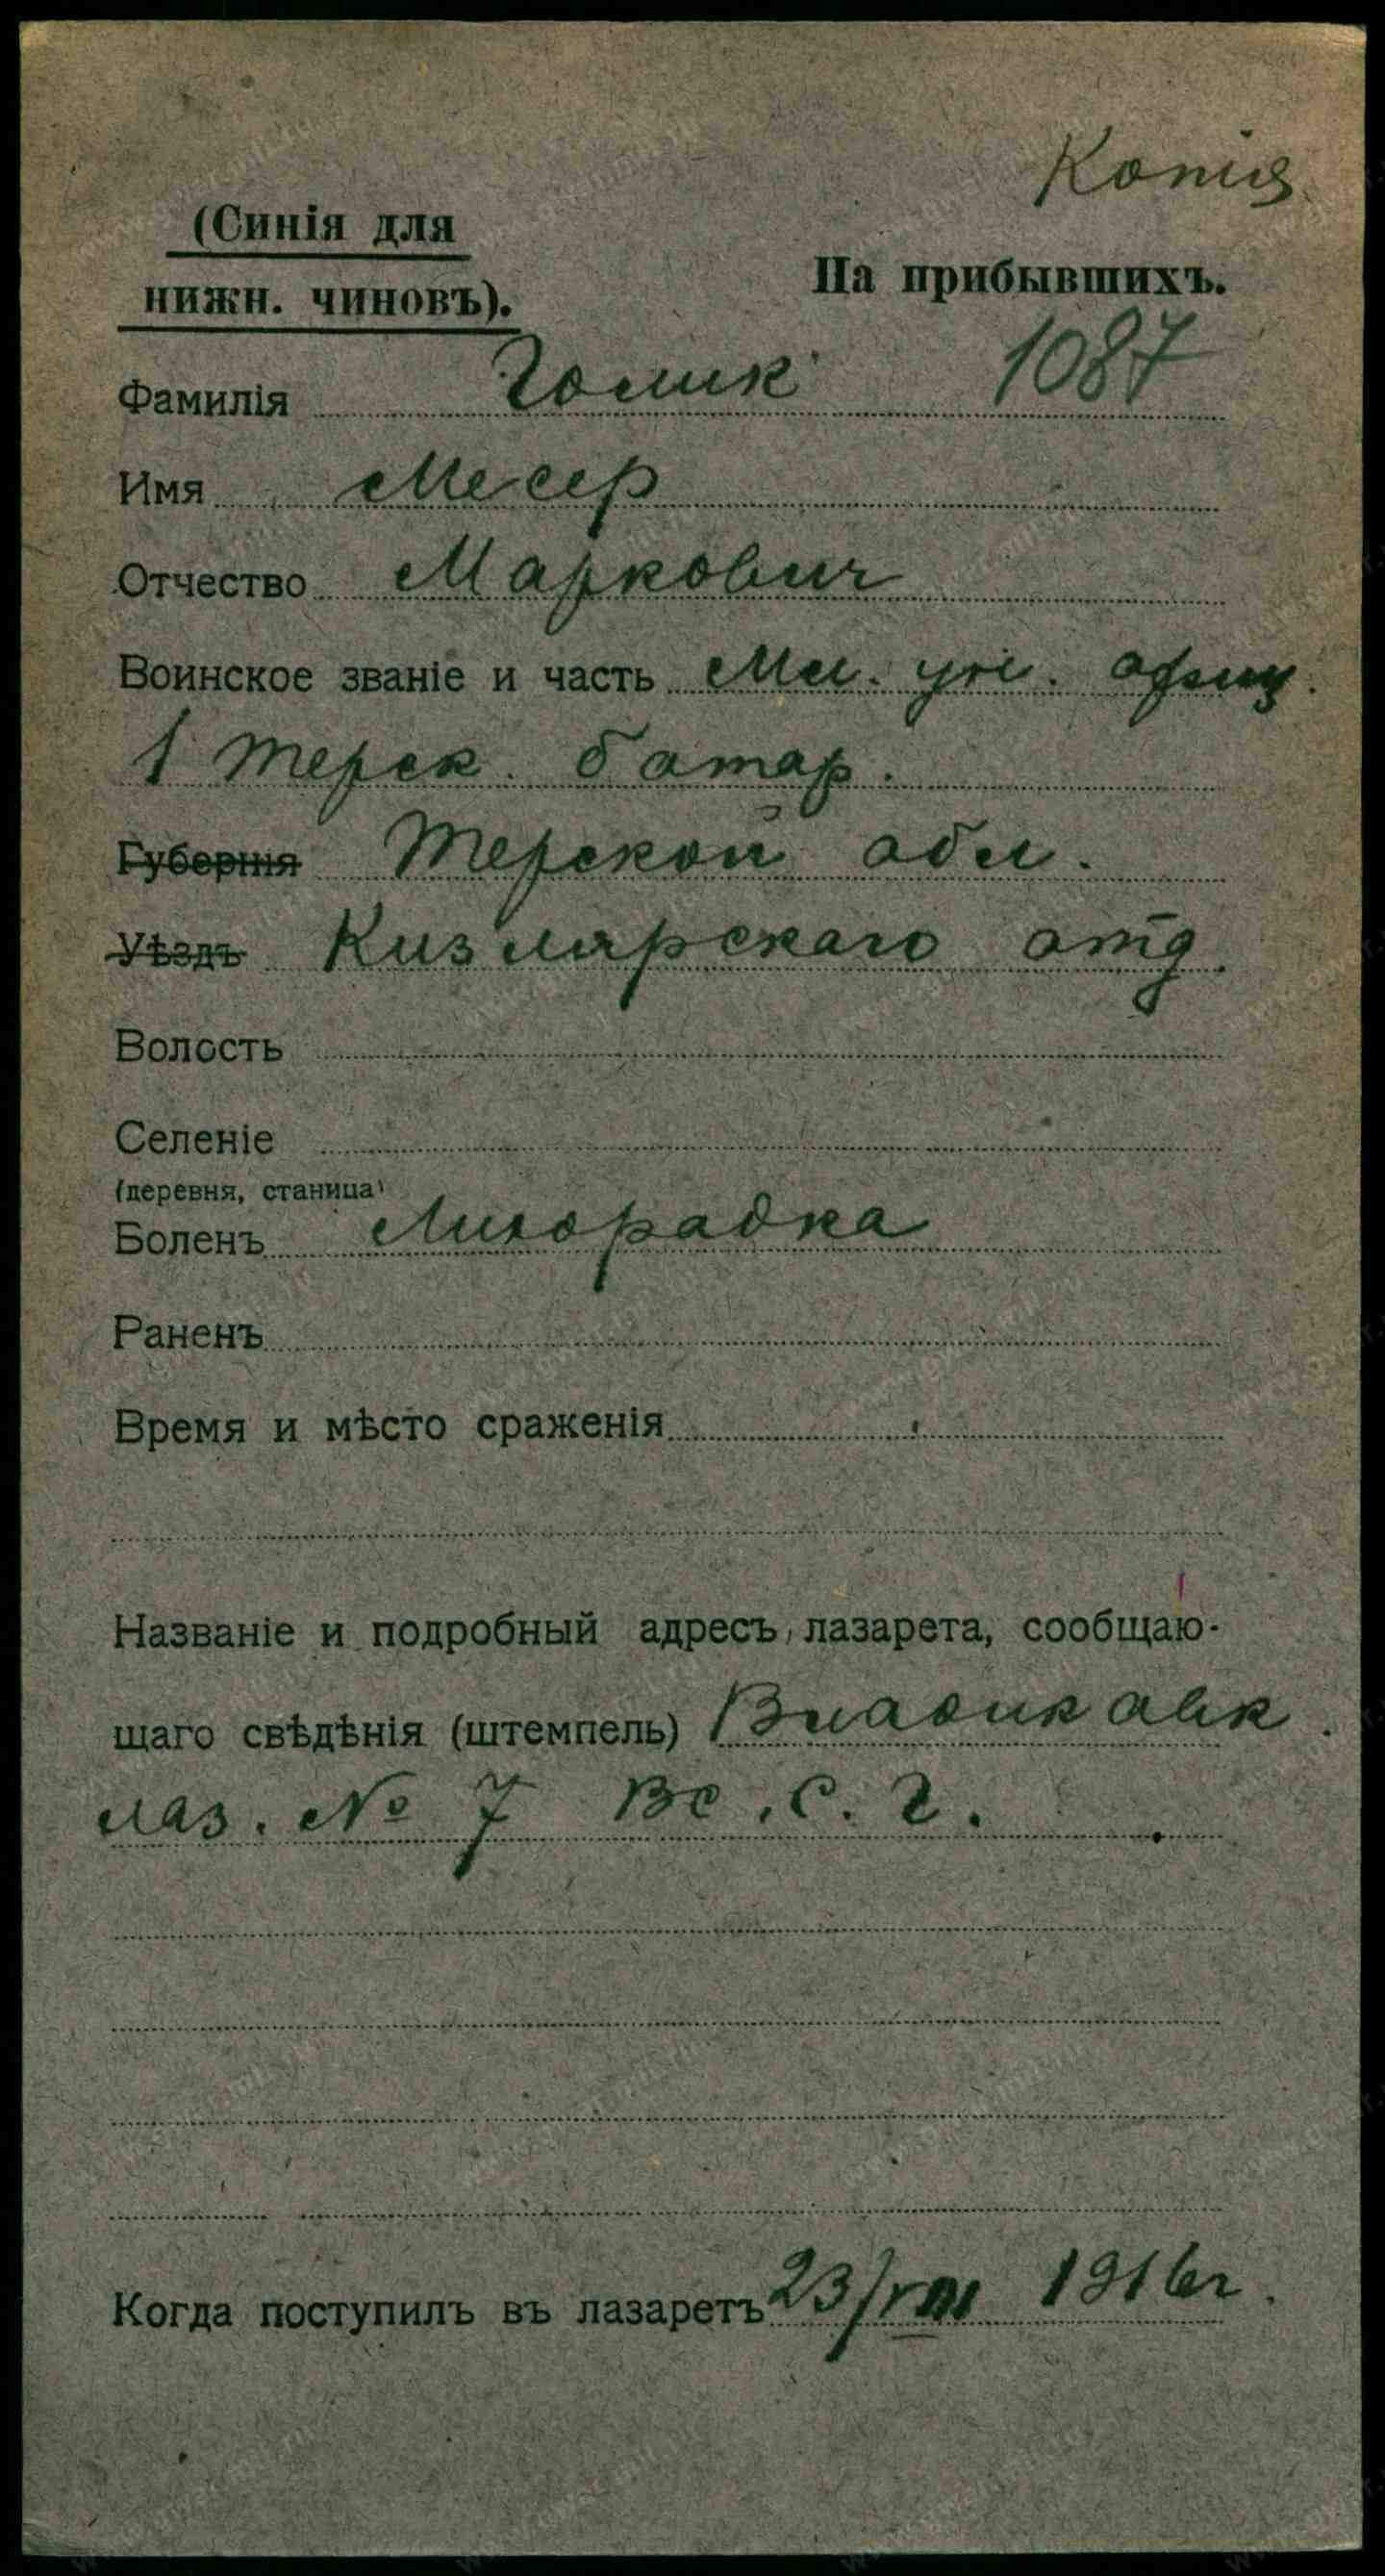 Копія
(Синія для
нижн. чиновъ).
На прибывшихъ.
1087
Фамилія Голик
Имя Месер
Отчество Маркович
Воинское званіе и часть Мл. ун. офиц.
1 Терск. батар.
Губернія Терской обл.
Уѣздъ Кизлярскаго отд.
Волость
Селеніе
(деревня, станица)
Боленъ Лихорадка
Раненъ
Время и мѣсто сраженія
Названіе и подробный адресъ лазарета, сообщаю-
щаго свѣдѣнія (штемпель) Владикавк.
лаз. № 7 Вс. С. Г.
Когда поступилъ въ лазаретъ 23/VIII 1916 г.